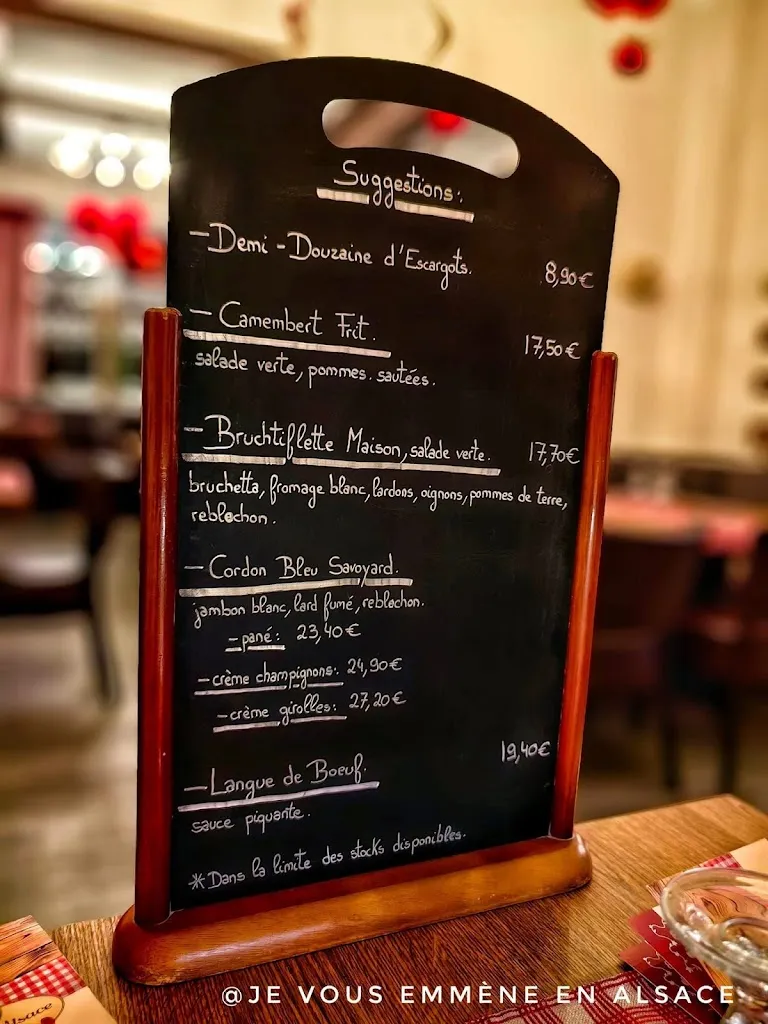 Suggestions:
-Demi-Douzaine d'Escargots. 8,90€
- Camembert Frit. 17,50€
salade verte, pommes. sautées.
-Bruchtiflette Maison, salade verte. 17,70€
bruchetta, fromage blanc, lardons, oignons, pommes de terre,
reblochon.
-Cordon Bleu Savoyard.
jambon blanc, lard fumé, reblochon.
-pané: 23,40€
-crème champignons: 24,90€
-crème girolles: 27,20€
-Langue de Boeuf. 19,40€
sauce piquante.
*Dans la limite des stocks disponibles.
Alsace
@JE VOUS EMMÈNE EN ALSACE